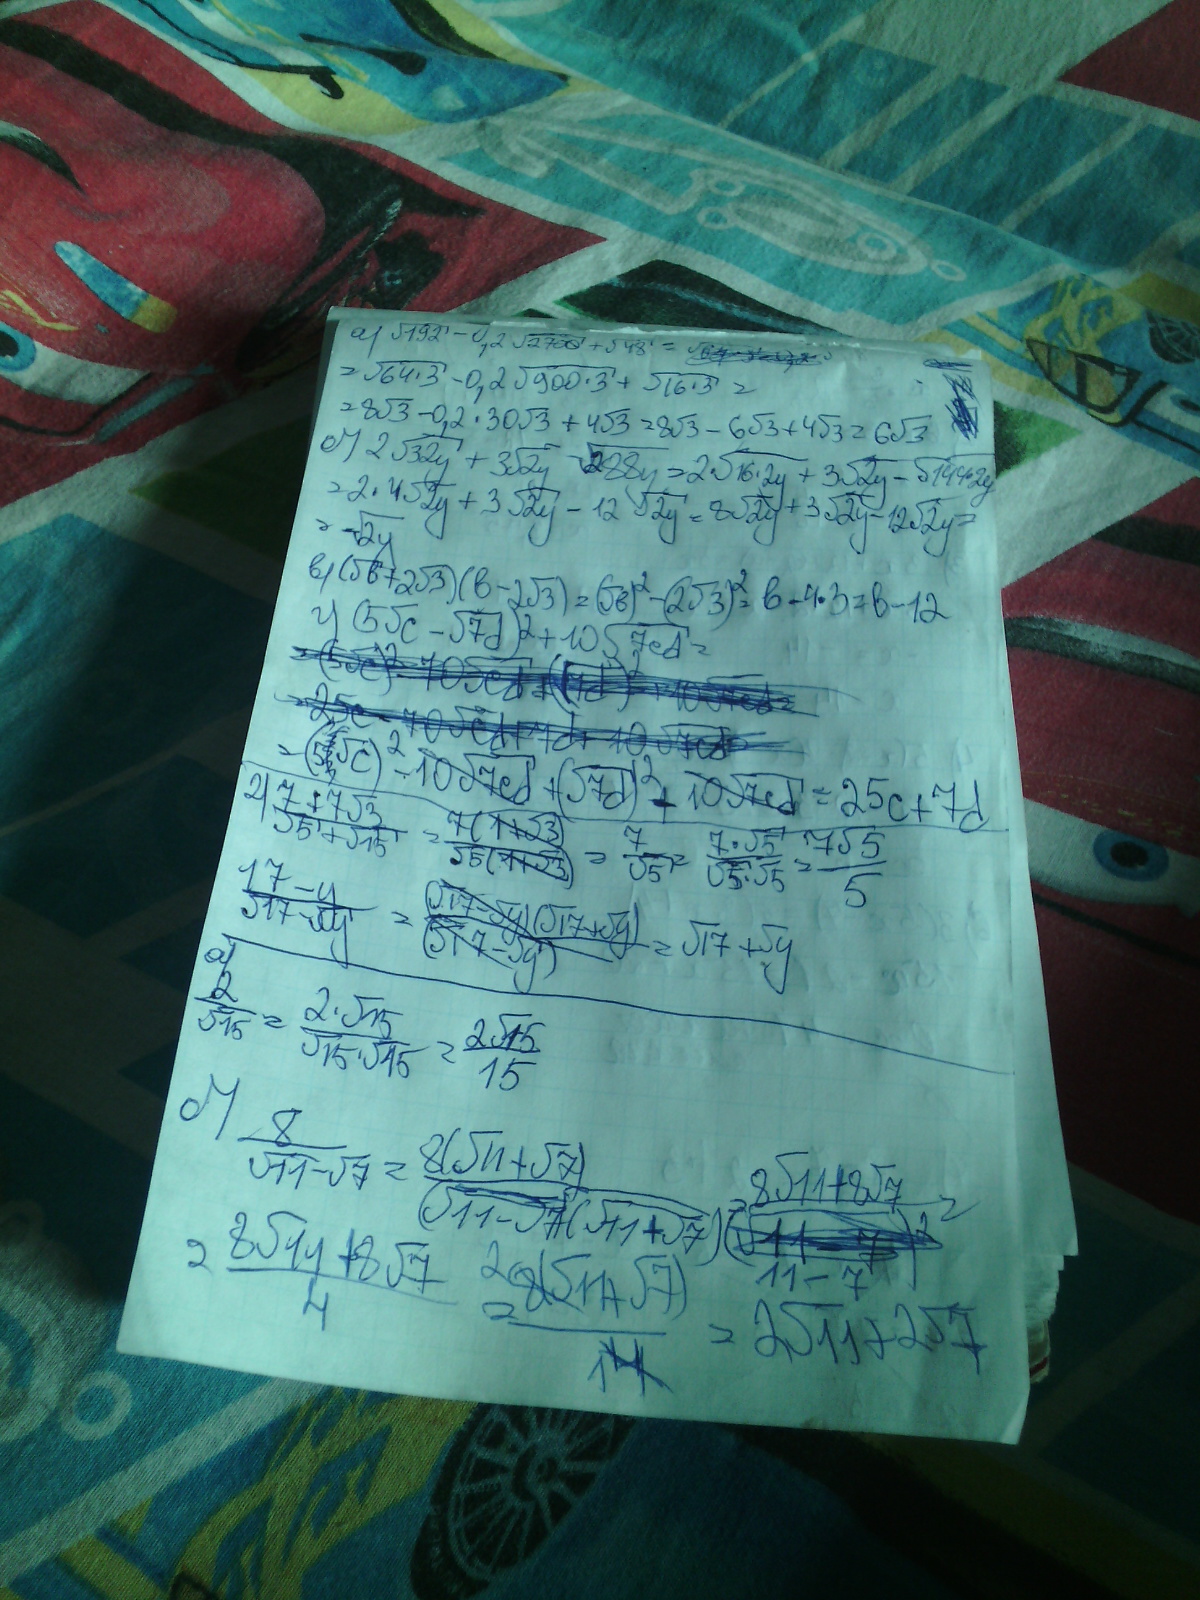 а) √192 - 0,2√2700 + √48 =
= √64·3 - 0,2√900·3 + √16·3 =
= 8√3 - 0,2·30√3 + 4√3 = 8√3 - 6√3 + 4√3 = 6√3
б) 2√32y + 3√2y - √288y = 2·√16·2y + 3√2y - √144·2y
= 2·4√2y + 3√2y - 12√2y = 8√2y + 3√2y - 12√2y =
= -√2y
в) (√в + 2√3)(в - 2√3) = (√в)² - (2√3)² = в - 4·3 = в - 12
г) (5√c - √7d)² + 10√7cd =
= (5√c)² - 10√7cd + (√7d)² + 10√7cd = 25c + 7d
2) 7+7√3/√5+√15 = 7(1+√3)/√5(1+√3) = 7/√5 = 7·√5/√5·√5 = 7√5/5
17-y/√17-√y = (√17-√y)(√17+√y)/(√17-√y) = √17+√y
а)
2/√15 = 2·√15/√15·√15 = 2√15/15
б)
8/√11-√7 = 8(√11+√7)/(√11-√7)(√11+√7) = 8√11+8√7/11-7 =
= 8√11+8√7/4 = 8(√11+√7)/4 = 2√11+2√7